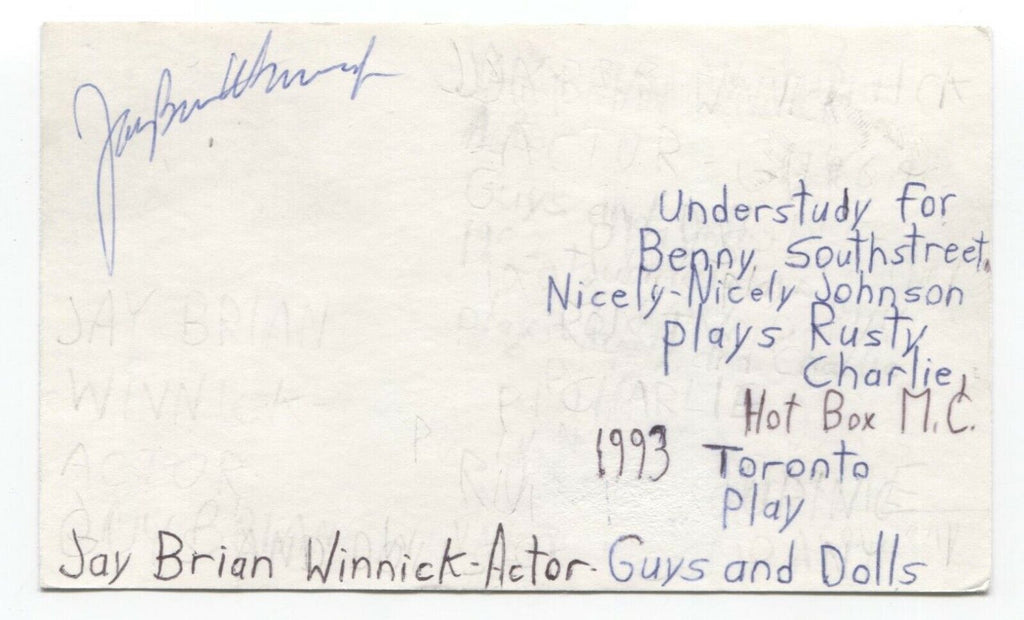 Jay Brian Winnick
Understudy for
Benny Southstreet,
Nicely-Nicely Johnson
plays Rusty
Charlie,
Hot Box M.C.
1993 Toronto
Play
Jay Brian Winnick-Actor-Guys and Dolls